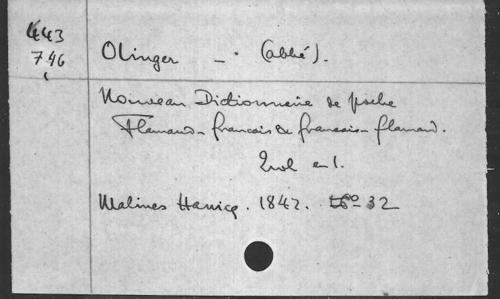 443
746
Olinger - . (abbé).
Nouveau Dictionnaire de poche
Flamand-français & français-flamand.
2 vol en 1.
Malines Hanicq. 1842. 32